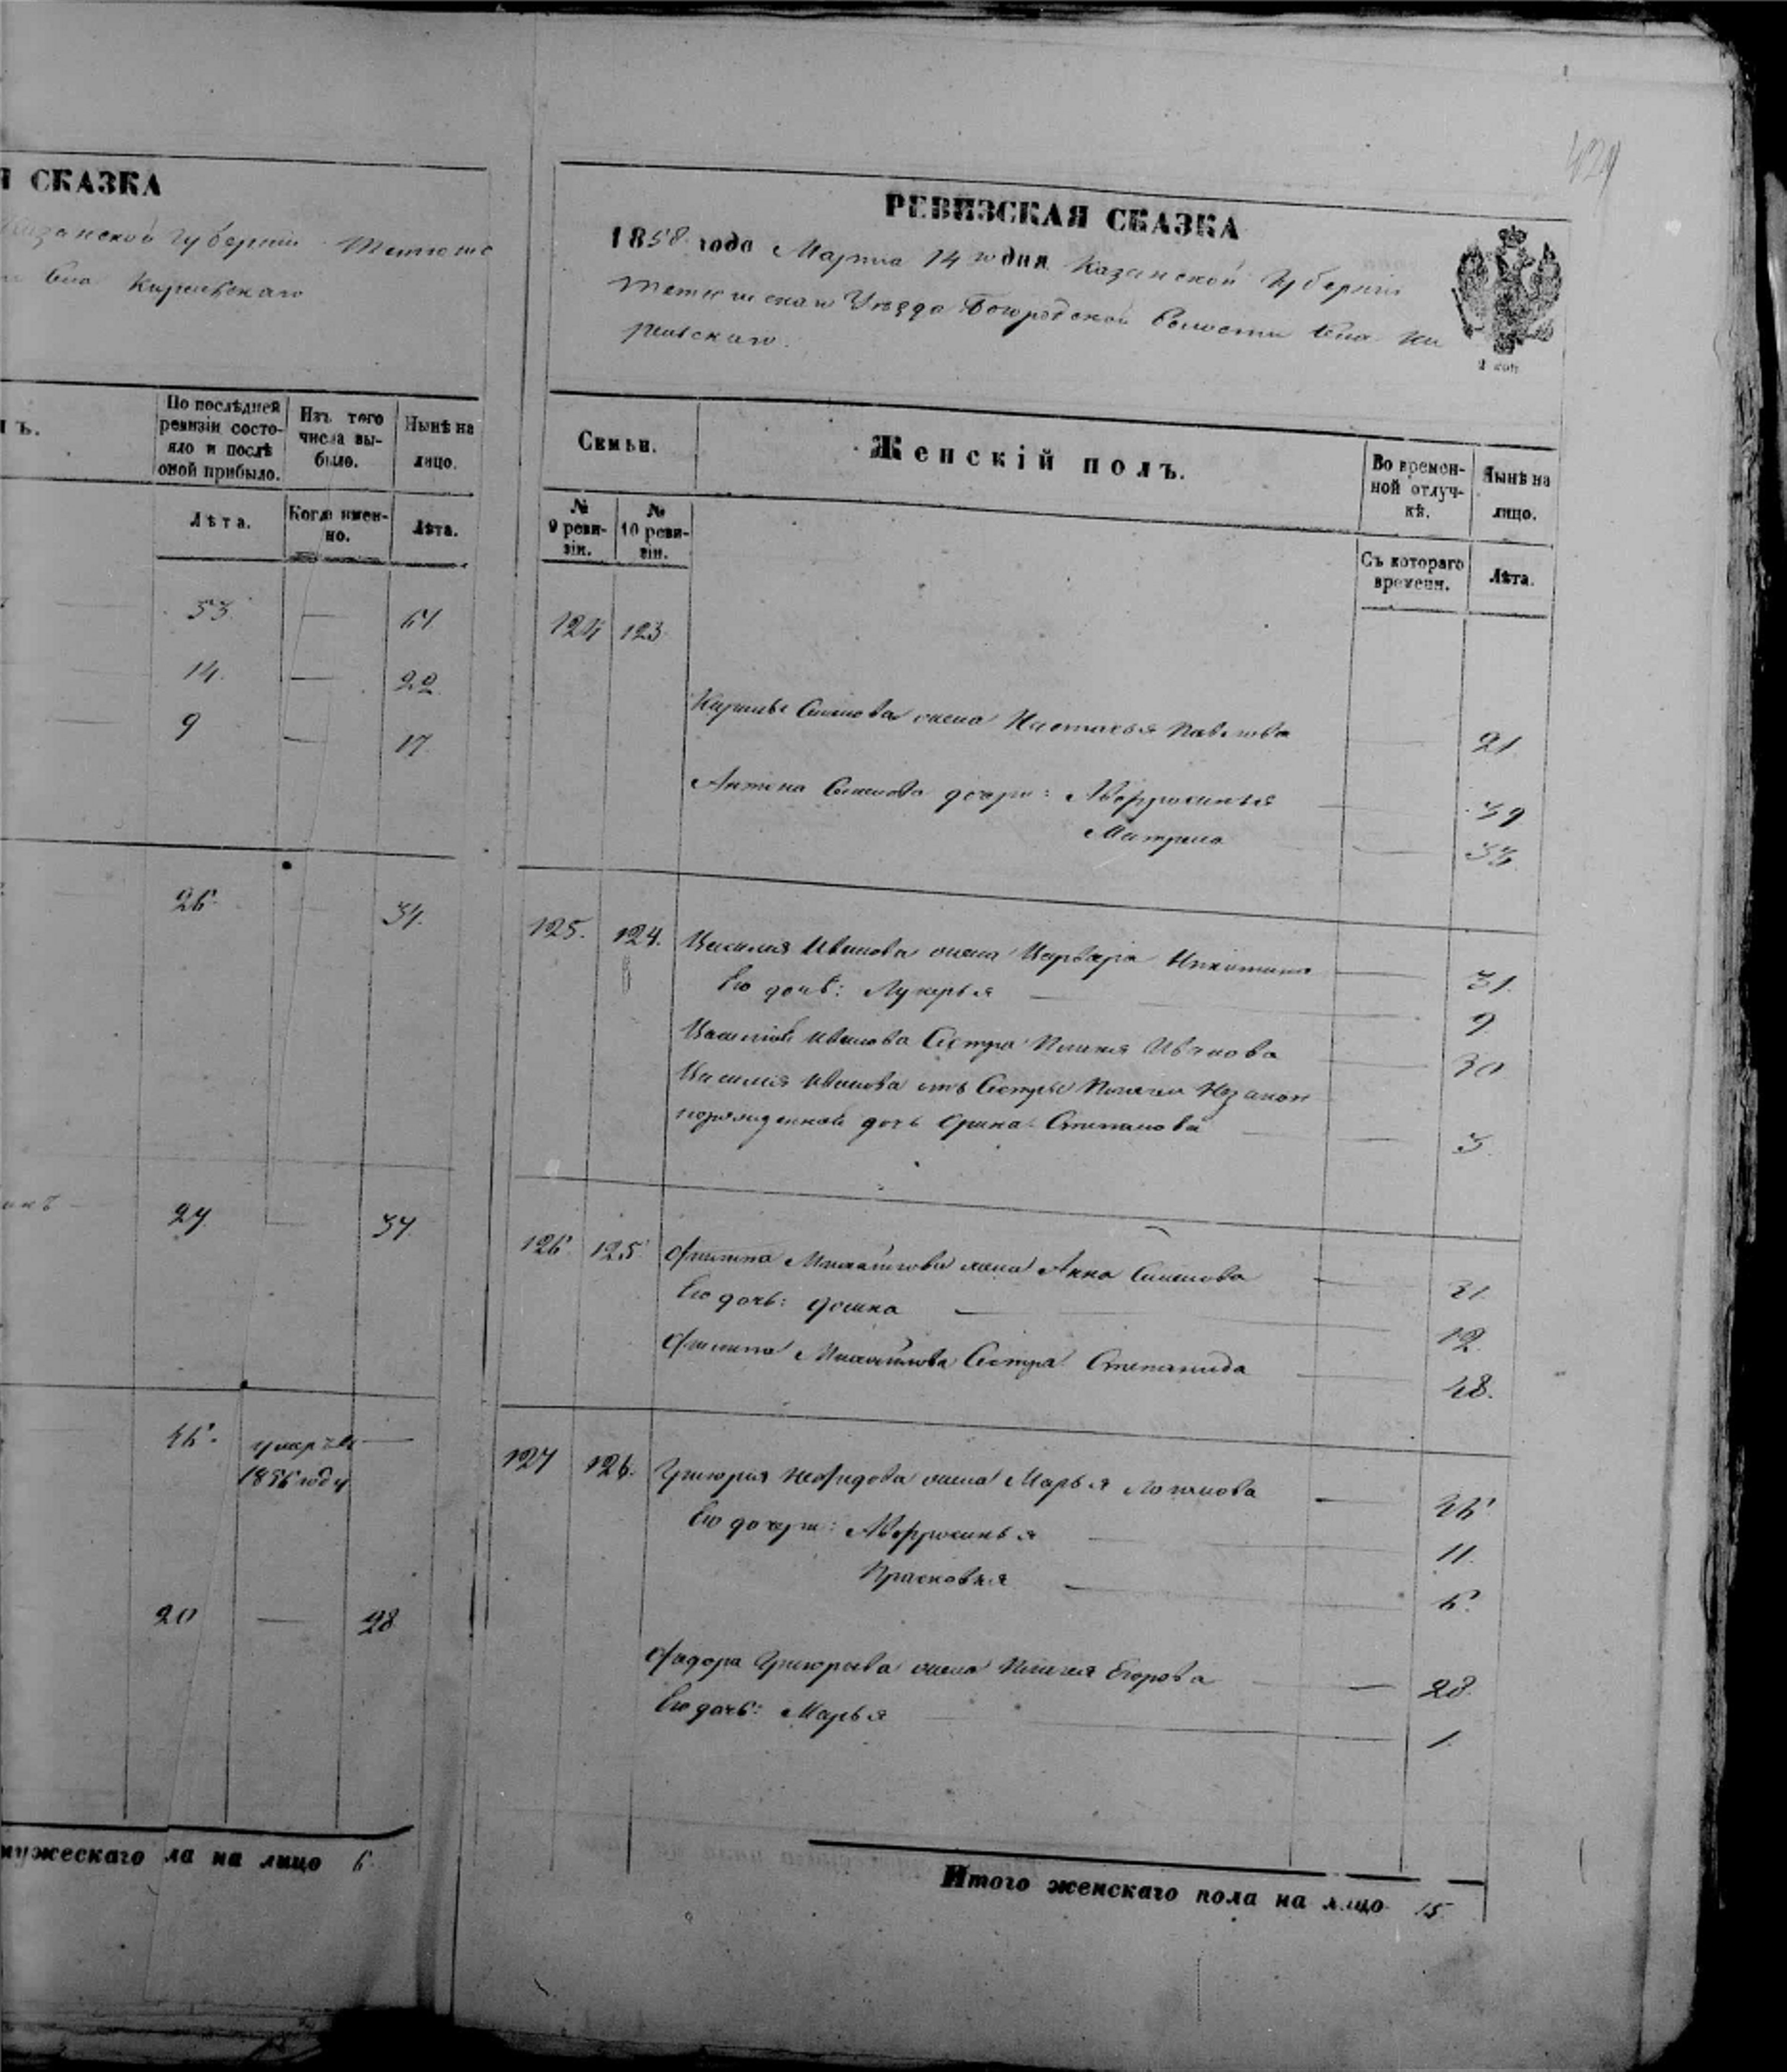 СКАЗКА
Казанской Губернии Тетюшс
Села Кирельскаго
По послѣдней ревизіи состо-
яло и послѣ
оной прибыло.
Изъ того
числа вы-
было.
Нынѣ на
лицо.
Лѣта.
Когда имен-
но.
Лѣта.
53
14. — 22
9 — 17
26 34
27 — 37
умерѣ
1856 году
20 — 28
мужескаго ла на лицо 6
РЕВИЗСКАЯ СКАЗКА
1858 года Марта 14 го дня Казанской Губерніи
Тетюшскаго Уѣзда Богородской Волости Села Ки
рельскаго.
2 коп
Семьи.
Женскій полъ.
Во времен-
ной отлуч-
кѣ.
Нынѣ на
лицо.
№
9 реви-
зіи.
№
10 реви-
зіи.
Съ котораго
времени.
Лѣта.
124 123
Семенова жена Настасья Павлова — 21
Антона Семенова дочери: Авфросинья — 39
Матрена —
125. 124. Василия Иванова жена Варвара Никитина — 31.
Его дочь: Лукерья — 9
Василия Иванова Сестра Пелагея Иванова — 30
Василия Иванова отъ Сестры Пелагеи Незакон
норожденной дочь Орина Степанова — 3
126 125 Филипа Михайлова жена Анна Семенова — 31
Его дочь: — 12
Филипа Михайлова Сестра Степанида — 48.
127 126. Григория Нефедова жена Марья — 46
Его дочери: Авфросинья — 11.
Прасковья — 6
Федора Григорьева жена Пелагея Егорова — 28
Его дочь: Марья — 1
Итого женскаго пола на лицо 15